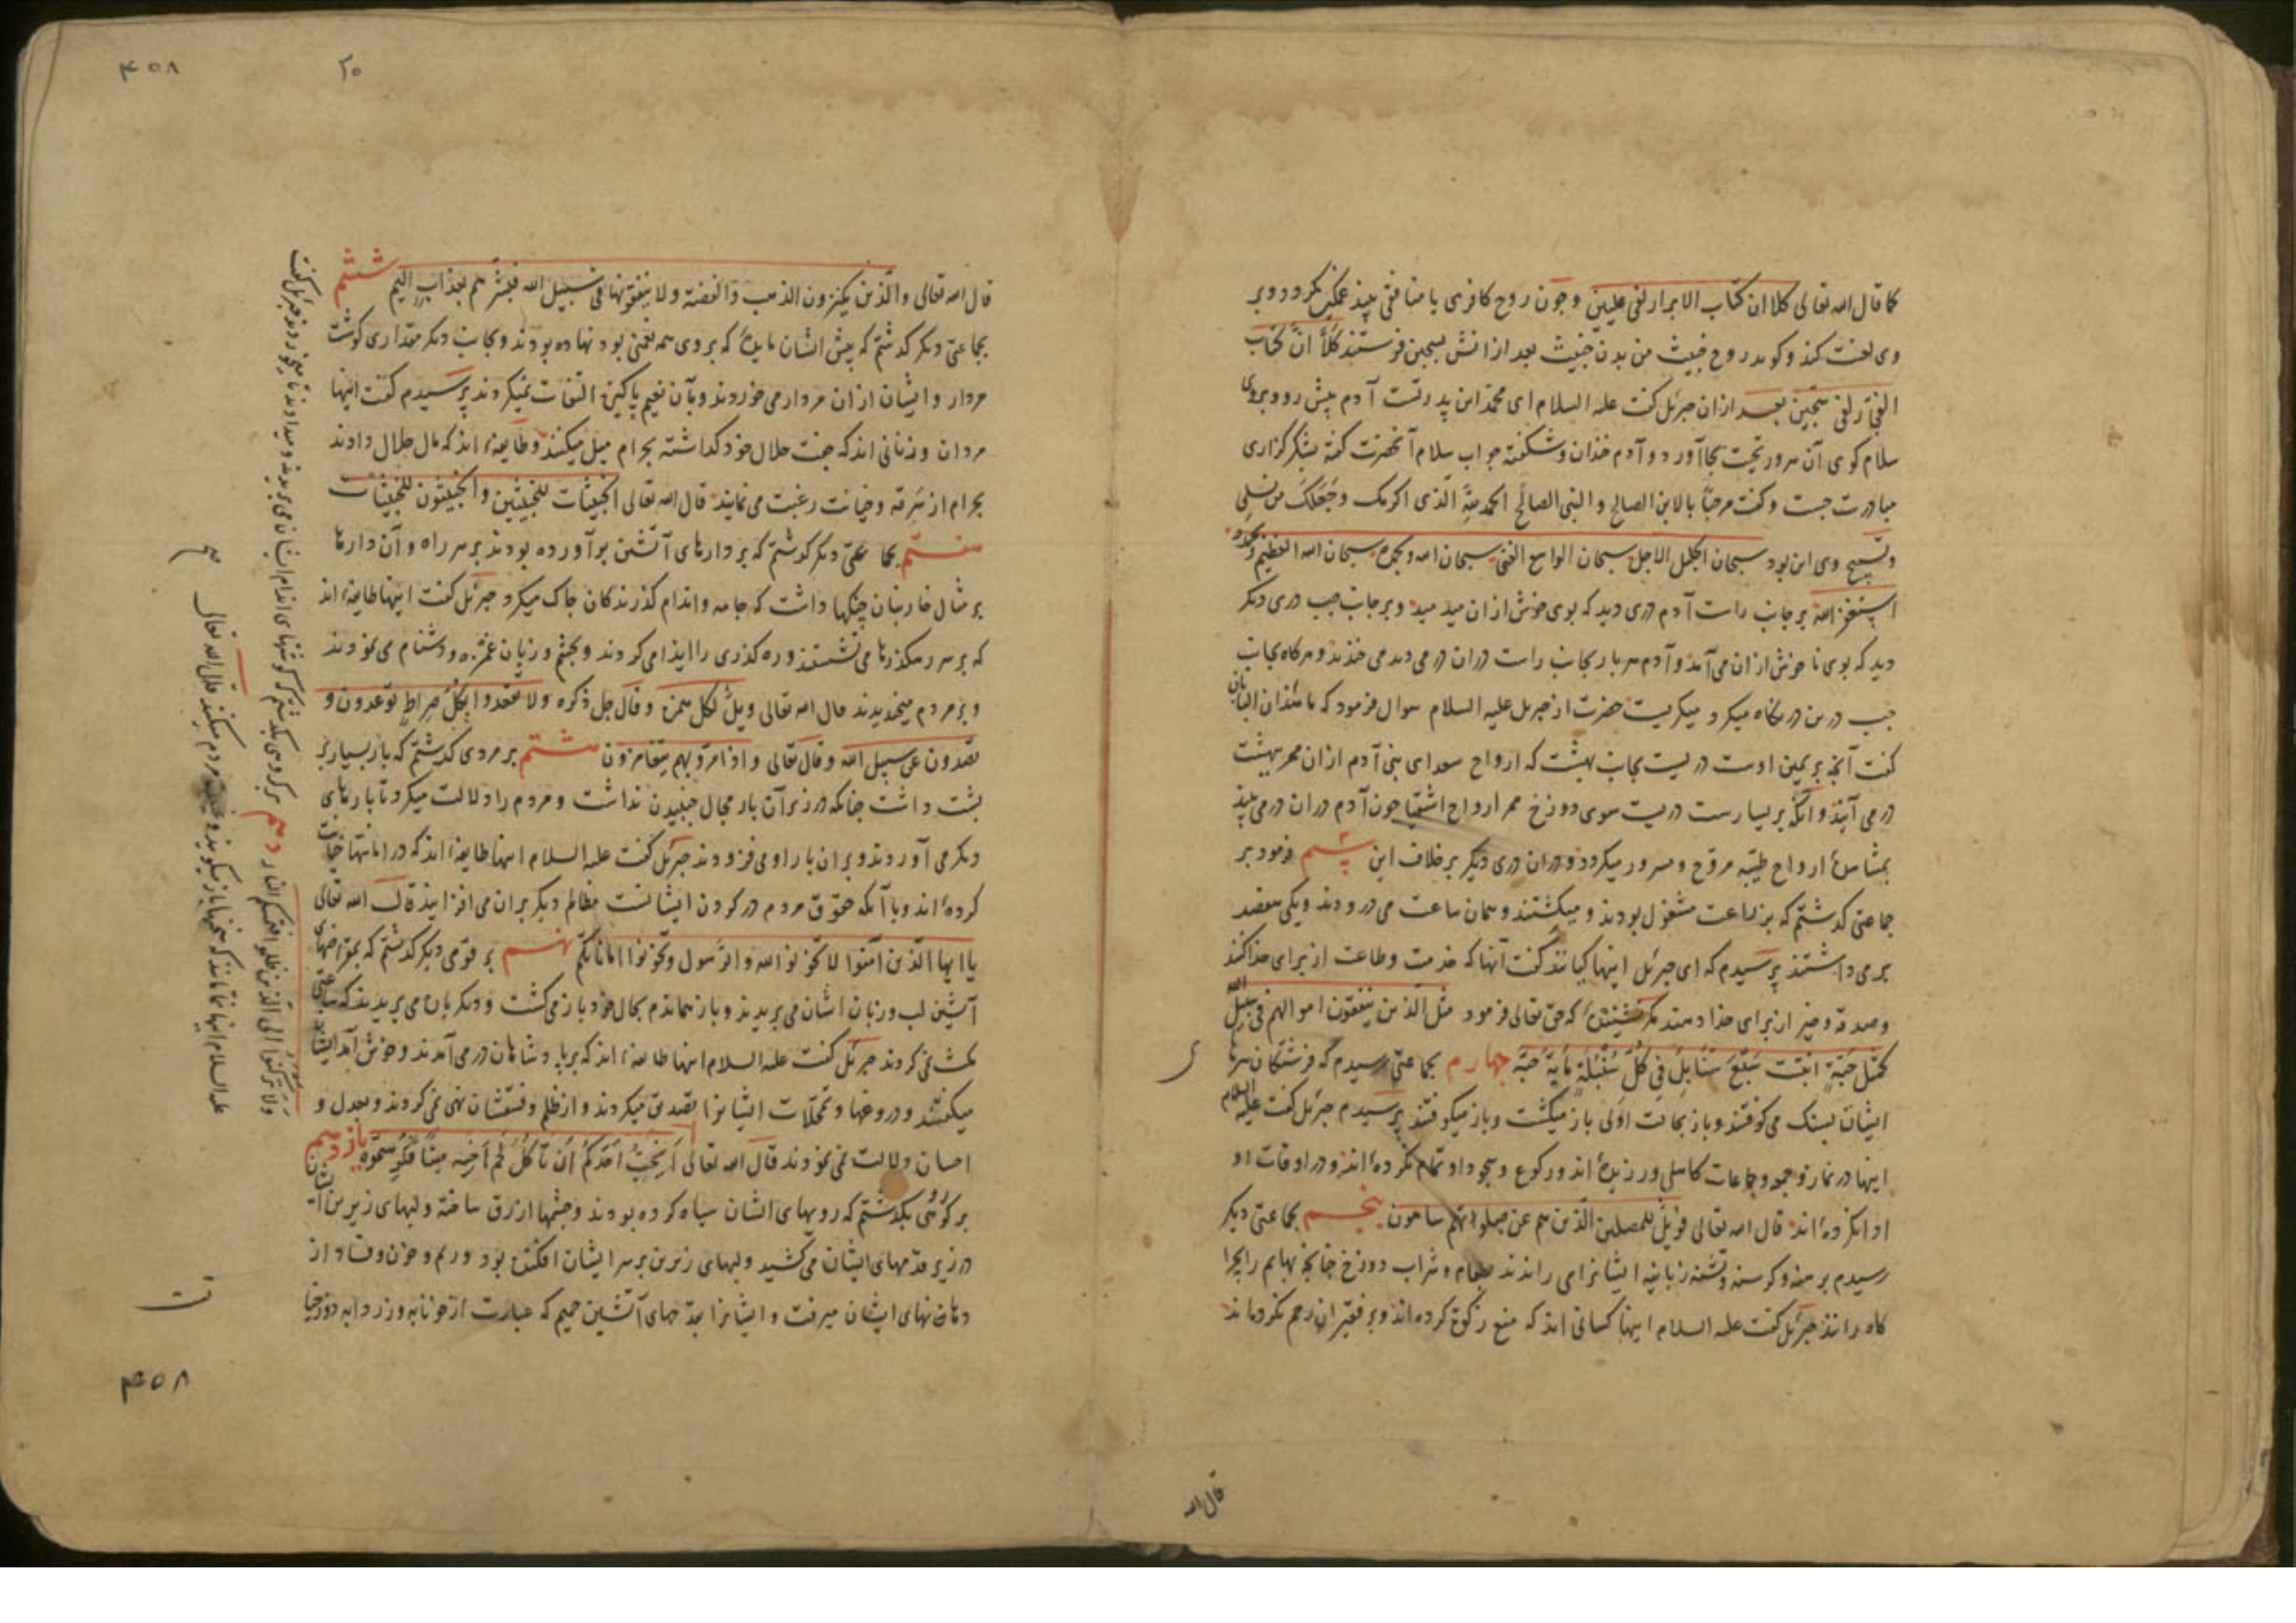 کما قال الله تعالی کلا ان کتاب الابرار لفی علیین و چون روح کافری یا منافقی بیند غمگین گردد و بر
وی لعنت کند و کوید روح خبیث من بدن خبیث بعد ازانش بسجین فرستند کَلَّا اِنَّ کتاب
الفجّار لفی سجّین بعد ازان جبرئل کفت علیه السلام ای محمد این پدر تست آدم پیش رو و بروی
سلام کوی آن سرور تحیت بجا آورد و آدم خندان و شکفته جواب سلام آنحضرت کفته بشکر کزاری
مبادرت جست و کفت مرحبًا بالابن الصالح و النبی الصالح الحمد لله الّذی اکرمک وَجَعَلَکَ من نسلی
و تسبیح وی این بود سبحان الجلیل الاجل سبحان الواسع الغنی سبحان الله وبحمده سبحان الله العظیم وبحمده
استغفر الله بر جانب راست آدم دری دید که بوی خوش ازان میدمید و بر جانب چپ دری دیگر
دید که بوی ناخوش ازان می آمد و آدم هر بار بجانب راست دران در می دید می خندید و هرکاه بجانب
چپ درین در نکاه میکرد میکریست حضرت از جبریل علیه السلام سوال فرمود که
کفت آنچه بر یمین اوست دریست بجانب بهشت که ارواح سعدای بنی آدم ازان ممر ببهشت
در می آیند و آنکه بر یسارست دریست سوی دوزخ ممر ارواح اشقیا چون آدم دران در می بیند
بمشاهدهٔ ارواح طیّبه مروّح و مسرور میکردد و دران دری دیگر برخلاف این سیم فرمود بر
جماعتی کذشتم که بزراعت مشغول بودند و میکشتند و همان ساعت می درودند و یکی هفصد
بر می داشتند پرسیدم که ای جبرئل اینها کیانند کفت آنها که خدمت و طاعت از برای خدا کنند
و صدقه و خیر از برای خدا دهند که حق تعالی فرمود مثل الّذین ینفقون اموالهم فی سبیل الله
کَمَثَلِ حَبَّةٍ انبتت سَبْعَ سَنَابِلَ فِی کُلِّ سُنْبُلَةٍ مِایَةُ حَبَّةٍ چهارم بجماعتی رسیدم که فرشتکان سرها
ایشان بسنک می کوفتند و باز بحالت اولی باز میکشت و باز میکوفتند پرسیدم جبرئل کفت علیه السلام
اینها در نماز جمعه و جماعات کاهلی ورزیده اند و رکوع و سجود او تمام نکرده اند و در اوقات او
ادا نکرده اند قال الله تعالی فویل للمصلین الّذین هم عن صلوتهم ساهون پنجم بجماعتی دیکر
رسیدم برهنه و کرسنه و تشنه زبانیه ایشانرا می راندند بطعام و شراب دوزخ چنانچه بهایم را بچرا
کاه رانند جبرئل کفت علیه السلام اینها کسانی اند که منع زکوة کرده اند و بر فقیران رحم نکرده اند
قال الله
۴۵۸
۲۰
قال الله تعالی والّذین یکنزون الذهب والفضة ولا ینفقونها فی سبیل الله فبشّرهم بعذاب الیم ششم
بجماعتی دیکر کذشتم که پیش ایشان مایدهٔ که بر وی همه نعمتی بود نهاده بودند و بجانب دیکر مقداری کوشت
مردار و ایشان ازان مردار می خوردند و بآن نعیم پاکیزه التفات نمیکردند پرسیدم کفت اینها
مردان و زنانی اند که جفت حلال خود کذاشته بحرام میل میکنند و طایفهٔ اند که مال حلال دادند
بحرام از سرقه و خیانت رغبت می نمایند قال الله تعالی الخبیثات للخبیثین والخبیثون للخبیثات
هفتم بجماعتی دیکر کذشتم که بر دارهای آتشین برآورده بودند بر سر راه و آن دارها
بر مثال خاربنان چنکها داشت که جامه و اندام کذرندکان چاک میکرد جبرئل کفت اینها طایفهٔ اند
که بر سر رهکذرها می نشستند و ره کذری را ایذا می کردند و بچشم و زبان غمزه و دشنام می نمودند
و بر مردم میخندیدند قال الله تعالی ویل لکل همزه و قال جل ذکره ولا تقعدوا بکل صراط توعدون و
تصدون عن سبیل الله و قال تعالی واذا مروا بهم یتغامزون هشتم بر مردی کذشتم که بار بسیار بر
پشت داشت چنانکه در زیر آن بار مجال جنبیدن نداشت و مردم را دلالت میکرد تا بارهای
دیکر می آوردند و بر ان بار او می فزودند جبرئل کفت علیه السلام اینها طایفهٔ اند که در امانتها خیانت
کرده اند و با آنکه حقوق مردم در کردن ایشانست مظالم دیکر بران می افزایند قال الله تعالی
یا ایها الّذین آمنوا لا تخونوا الله والرّسول وتخونوا اماناتکم نهم بر قومی دیکر کذشتم که بمقراضهای
آتشین لب و زبان ایشان می بریدند و باز هماندم بحال خود باز می کشت و دیکر بار می بریدند که ساعتی
مکث نمی کردند جبرئل کفت علیه السلام اینها طایفهٔ اند که بر پادشاهان در می آمدند و خوش آمد ایشان
میکفتند و دروغها و تمحّلات ایشانرا تصدیق میکردند و از ظلم و فسقشان نهی نمی کردند و بعدل و
احسان دلالت نمی نمودند قال الله تعالی اَیُحِبُّ اَحَدُکُمْ اَن یَأکُلَ لَحْمَ اَخِیهِ میتًا فَکَرِهتموه یازدهم
بر کروهی بکذشتم که رویهای ایشان سیاه کرده بودند و چشمها ازرق ساخته و لبهای زیرین ایشان
در زیر قدمهای ایشان می کشید و لبهای زبرین بر سر ایشان افکنده بود و ریم و خون و فساد از
دهانهای ایشان میرفت و ایشانرا بقدحهای آتشین حمیم که عبارت از خونابه و زردابه دوزخیان
ولا ترکنوا الی الّذین ظلموا فتمسکم النار دهم بر کروهی بکذشتم که کوشتهای اندام ایشان می بریدند و میدادند تا میخوردند جبرئل کفت
علیه السلام اینها نمامانند که سخنها باز میکویند و غیبت مردم میکنند قال الله تعالی
صح
۴۵۸